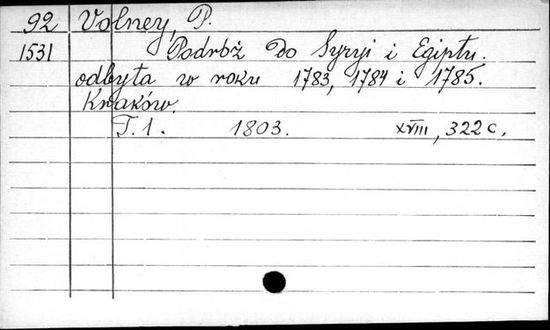 92 Volney, P.
1531 Podróż do Syryi i Egiptu.
odbyta w roku 1783, 1784 i 1785.
Kraków.
T. 1. 1803. XVIII, 322 c.